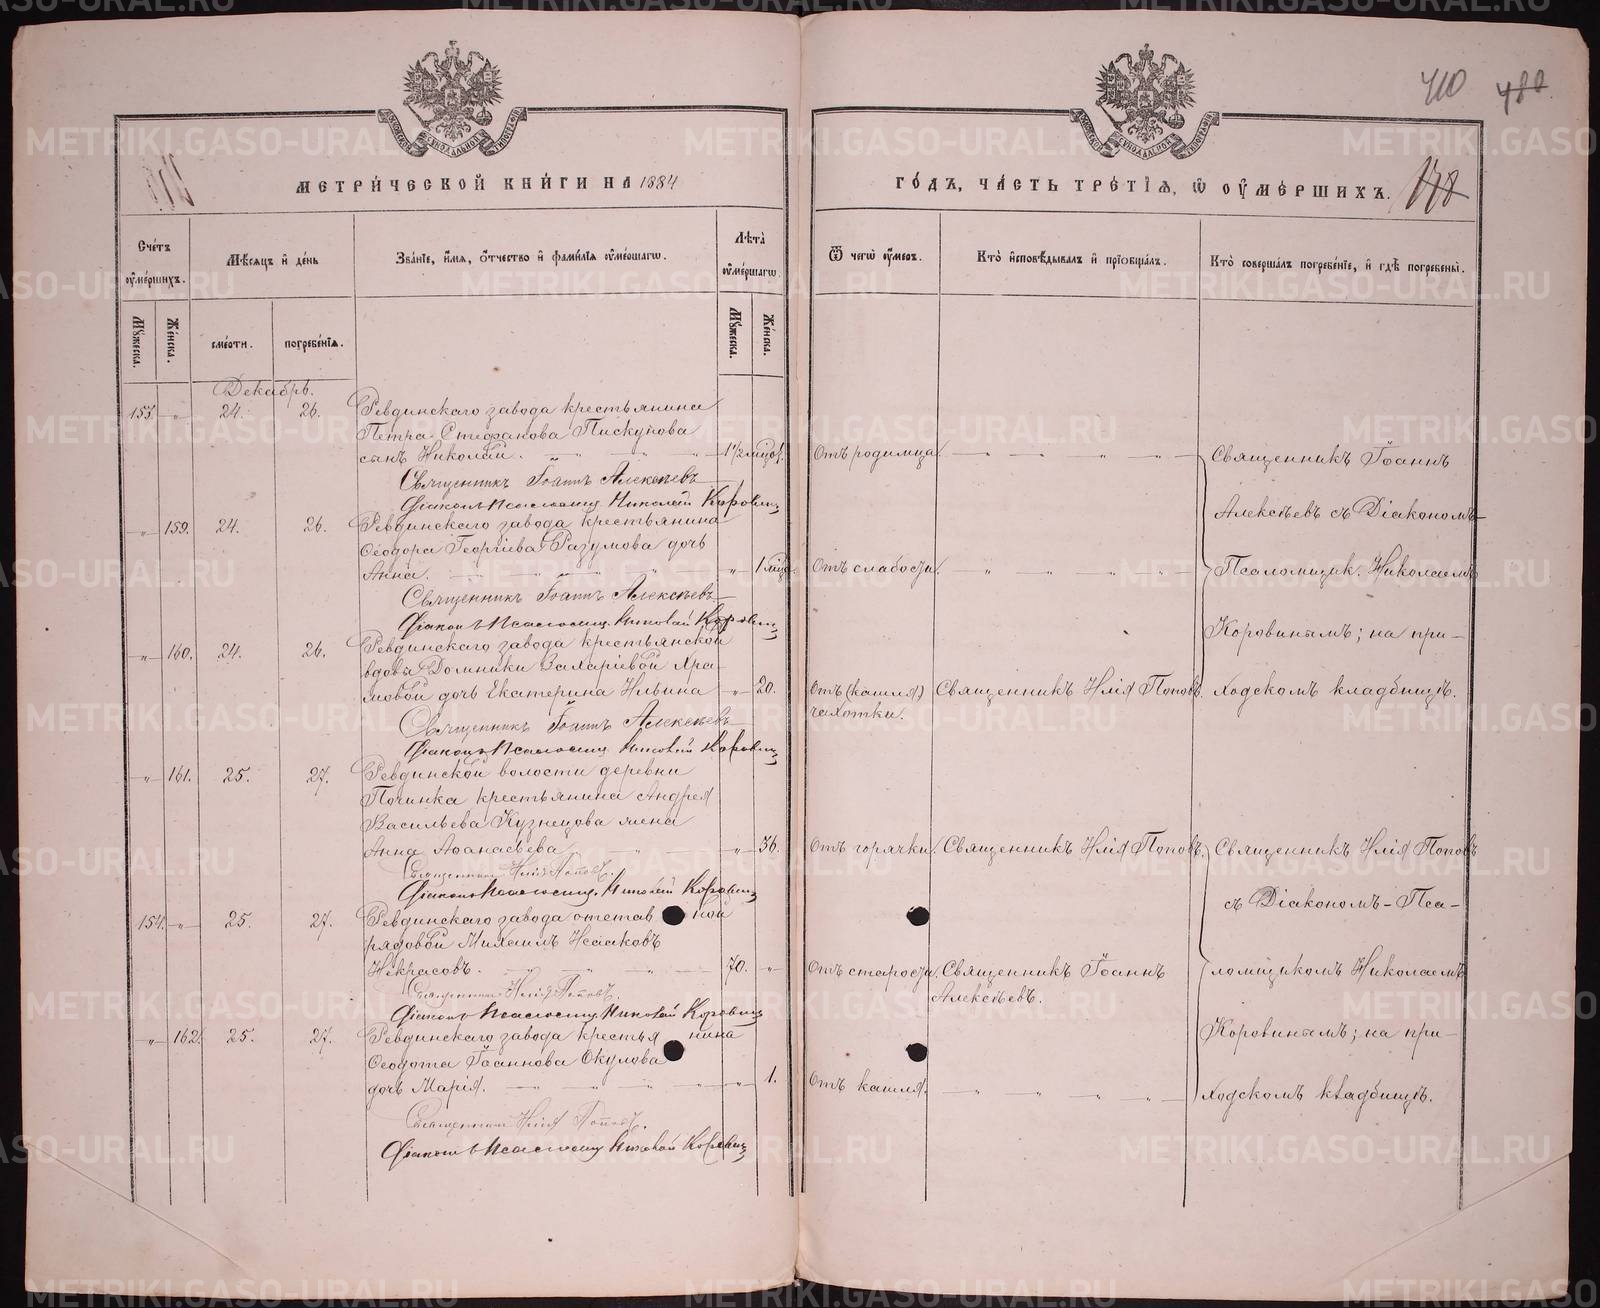 410 480
МЕТРИЧЕСКОЙ КНИГИ НА 1884
ГОДЪ, ЧАСТЬ ТРЕТІЯ, Ѿ ОУМЕРШИХЪ.
Счетъ оумершихъ.
Мѣсяцъ и день
Званіе, имя, отчество и фамилія оумершагѡ.
Лѣта оумершагѡ.
Ѿ чегѡ оумеръ.
Кто исповѣдывалъ и пріобщалъ.
Кто совершалъ погребеніе, и гдѣ погребены.
Мужеска.
Женска.
смерти.
погребенія.
Мужеска.
Женска.
Декабрь.
153. „ 24. 26. Ревдинскаго завода крестьянина
Петра Стефанова Пискунова
сынъ Николай. 1½ мѣсяц. Отъ родимца.
Священникъ Іоаннъ Алексѣевъ
Діаконъ-Псаломщ. Николай Коровинъ
„ 159. 24. 26. Ревдинскаго завода крестьянина
Ѳеодора Георгіева Разумова дочь
Анна. „ 1 мѣс. Отъ слабости.
Священникъ Іоаннъ Алексѣевъ
Діаконъ-Псаломщ. Николай Коровинъ
„ 160. 24. 26. Ревдинскаго завода крестьянской
вдовы Домники Захаріевой Хра-
мовой дочь Екатерина Ильина „ 20. Отъ (кашля) Священникъ Илія Поповъ.
чахотки.
Священникъ Іоаннъ Алексѣевъ
Діаконъ-Псаломщ. Николай Коровинъ
Священникъ Іоаннъ
Алексѣевъ съ Діакономъ-
Псаломщик. Николаемъ
Коровинымъ; на при-
ходскомъ кладбищѣ.
„ 161. 25. 27. Ревдинской волости деревни
Починка крестьянина Андрея
Васильева Кузнецова жена
Анна Аѳанасьева „ 36. Отъ горячки. Священникъ Илія Поповъ.
Священникъ Илія Поповъ.
Діаконъ-Псаломщ. Николай Коровинъ
154. „ 25. 27. Ревдинскаго завода отставной
рядовой Михаилъ Исааковъ
Некрасовъ. 70. „ Отъ старости. Священникъ Іоаннъ
Алексѣевъ.
Священникъ Илія Поповъ.
Діаконъ-Псаломщ. Николай Коровинъ
„ 162. 25. 27. Ревдинскаго завода крестьянина
Ѳеодота Іоаннова Окулова
дочь Марія. „ 1. Отъ кашля.
Священникъ Илія Поповъ.
Діаконъ-Псаломщ. Николай Коровинъ
Священникъ Илія Поповъ
съ Діакономъ-Пса-
ломщикомъ Николаемъ
Коровинымъ; на при-
ходскомъ кладбищѣ.
METRIKI.GASO-URAL.RU